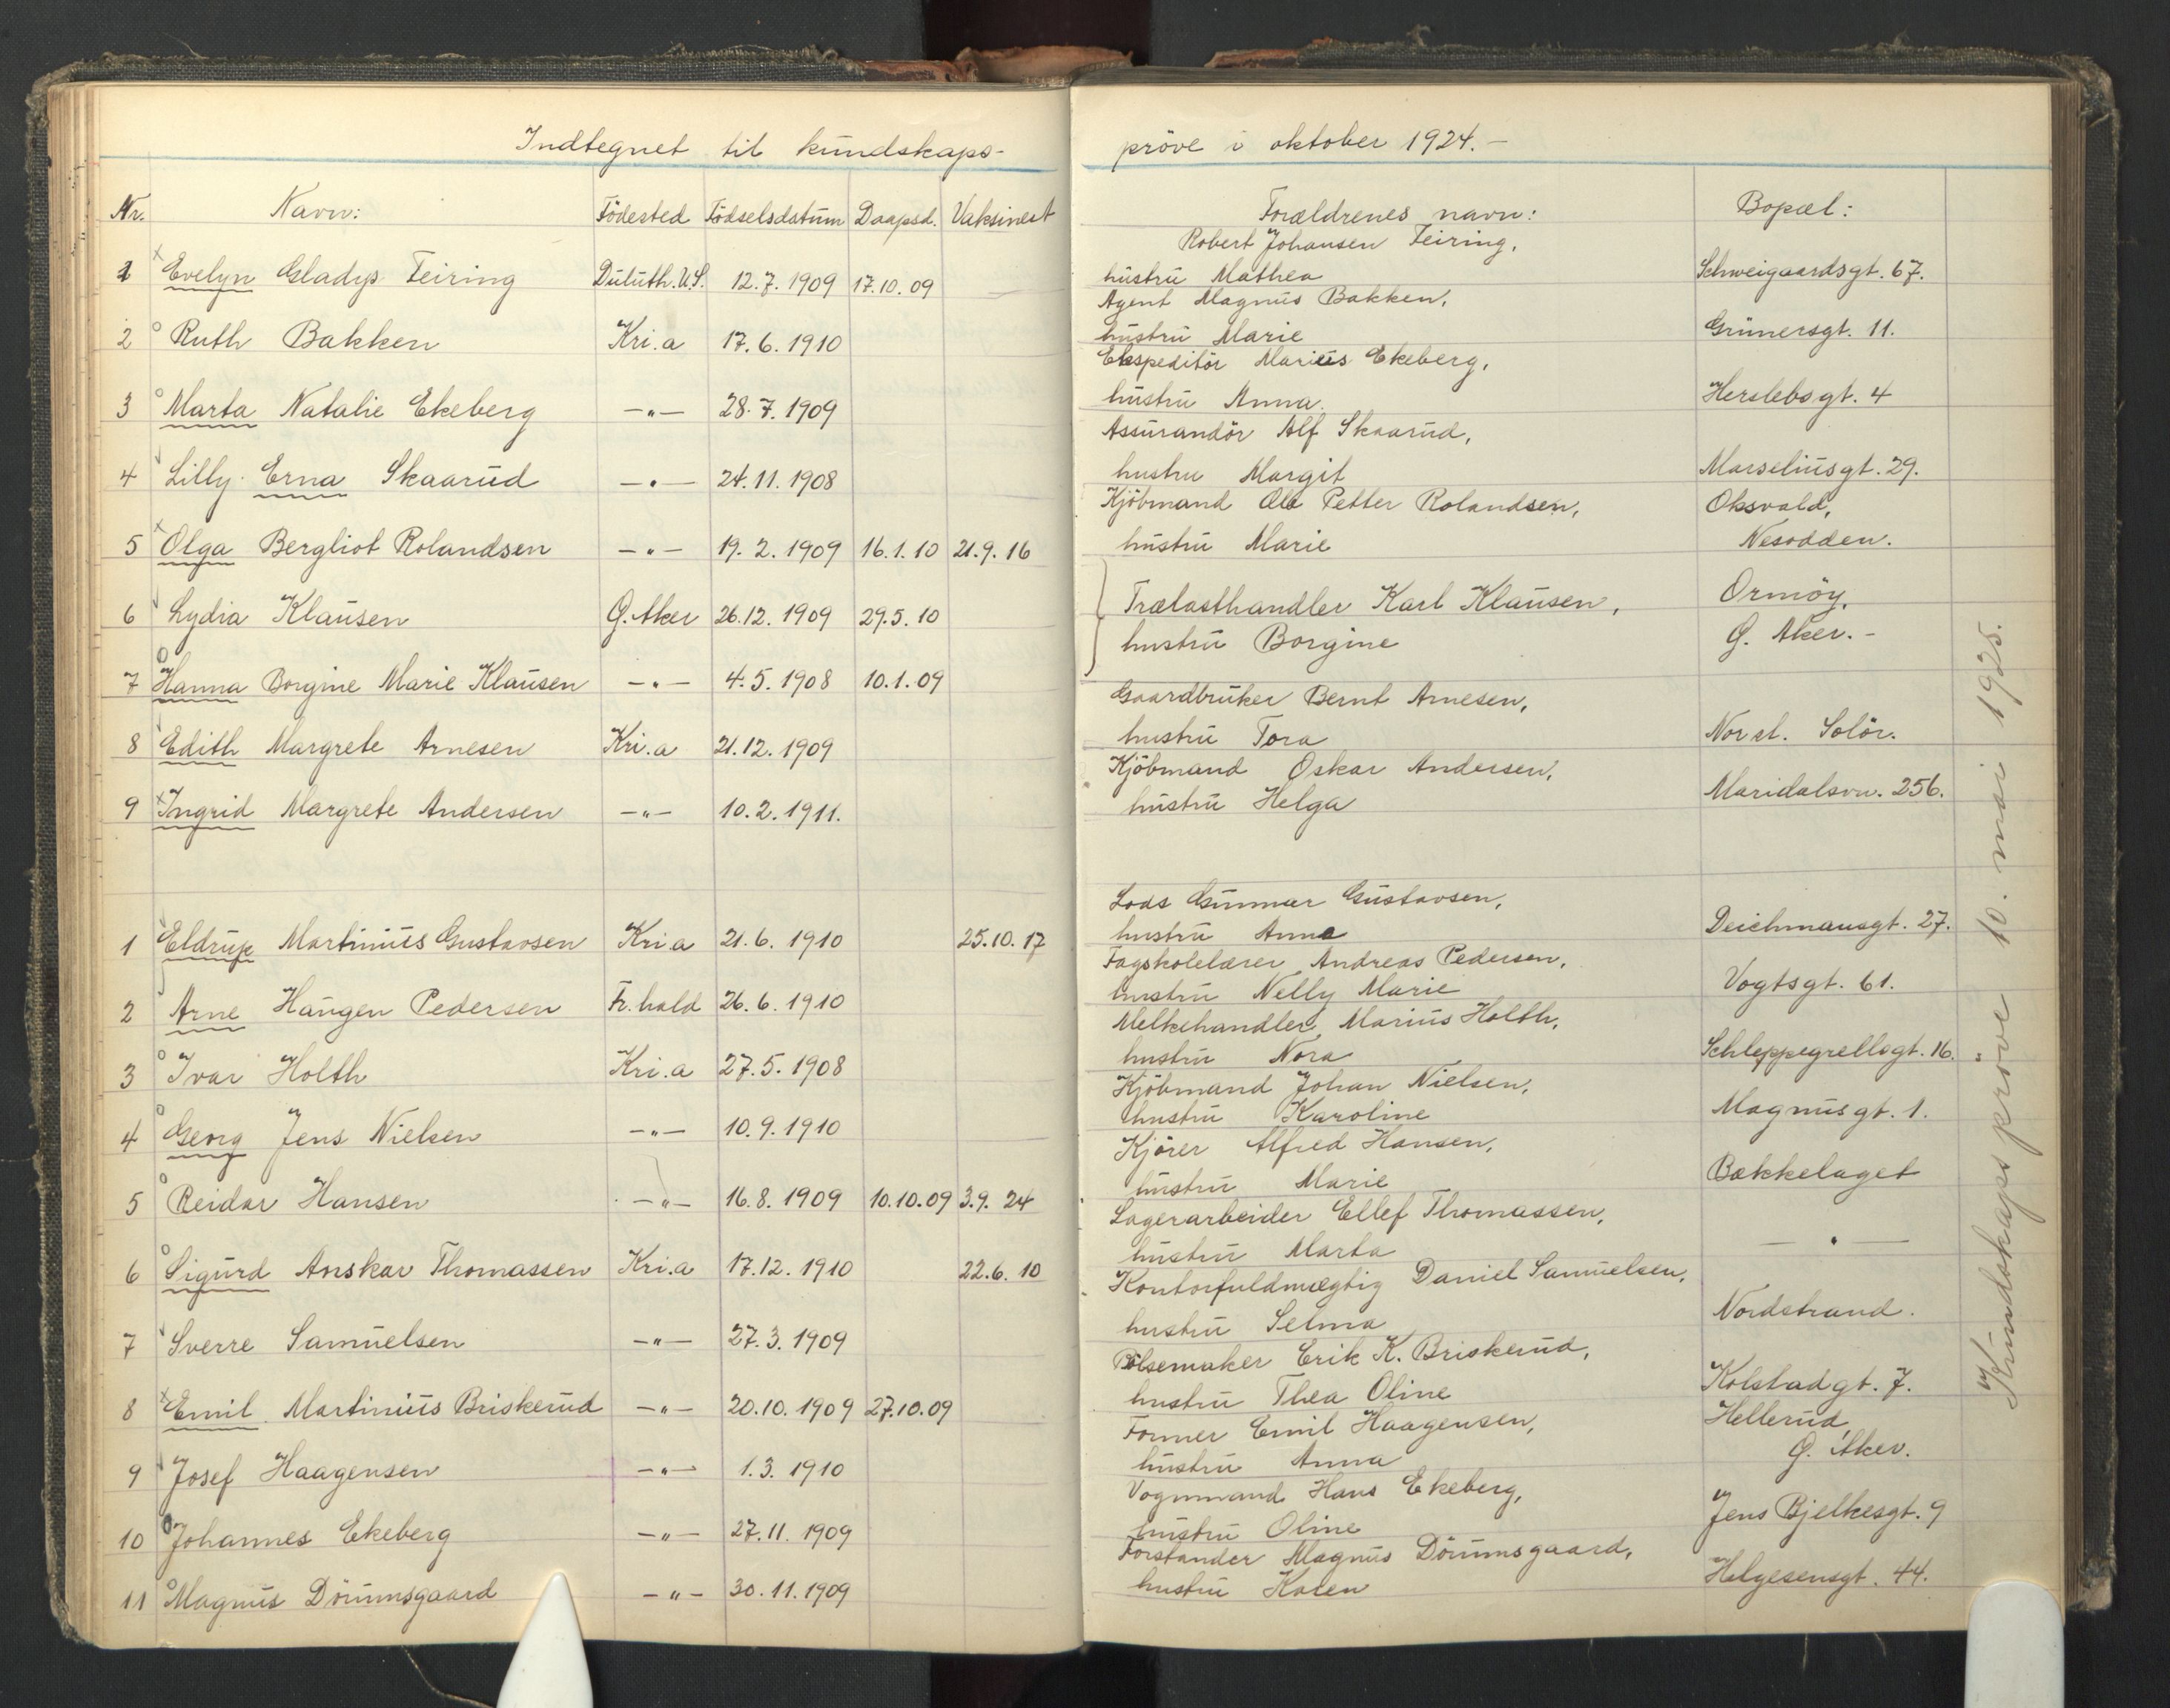 Indtegnet til kundskaps-
pröve i oktober 1924. -
Nr. Navn: Födested Födselsdatum Daapsd. Vaksinert Forældrenes navn: Bopæl:
1 x Evelyn Gladys Feiring Duluth. U.S. 12.7.1909 17.10.09 — Robert Johansen Feiring,
hustru Mathea Schweigaardsgt. 67.
2 o Ruth Bakken Kri.a 17.6.1910 Agent Magnus Bakken,
hustru Marie Grünersgt. 11.
3 o Marta Natalie Ekeberg -"- 28.7.1909 Ekspeditör Marius Ekeberg,
hustru Anna. Herslebsgt. 4
4 Lilly Erna Skaarud -"- 24.11.1908 Assurandör Alf Skaarud,
hustru Margit Marseliusgt. 29.
5 x Olga Bergliot Rolandsen -"- 19.2.1909 16.1.10 21.9.16 Kjöbmand Ole Petter Rolandsen, Oksvald,
hustru Marie Nesodden.
6 Lydia Klausen Ö. Aker 26.12.1909 29.5.10 Trælasthandler Karl Klausen, Ormöy,
hustru Borgine Ö. Aker. -
7 o Hanna Borgine Marie Klausen -"- 4.5.1908 10.1.09
8 Edith Margrete Arnesen Kri.a 21.12.1909 Gaardbruker Bernt Arnesen,
hustru Tora Nor st. Solör.
9 x Ingrid Margrete Andersen -"- 10.2.1911. Kjöbmand Oskar Andersen,
hustru Helga Maridalsvn. 256.
1 Eldrup Martinius Gustavsen Kri.a 21.6.1910 25.10.17 Lods Gunnar Gustavsen,
hustru Anna Deichmansgt. 27.
2 Arne Haugen Pedersen Fr.hald 26.6.1910 Fagskolelærer Andreas Pedersen,
hustru Nelly Marie Vogtsgt. 61.
3 o Ivar Holth Kri.a 27.5.1908 Melkehandler Marius Holth,
hustru Nora Schleppegrellsgt. 16.
4 o Georg Jens Nielsen -"- 10.9.1910 Kjöbmand Johan Nielsen,
hustru Karoline Magnusgt. 1.
5 o Reidar Hansen -"- 16.8.1909 10.10.09 3.9.24 Kjörer Alfred Hansen,
hustru Marie Bækkelaget
6 o Sigurd Anskar Thomassen Kri.a 17.12.1910 22.6.10 Lagerarbeider Ellef Thomassen,
hustru Marta -"-
7 Sverre Samuelsen -"- 27.3.1909 Kontorfuldmægtig Daniel Samuelsen,
hustru Selma Nordstrand.
8 x Emil Martinius Briskerud -"- 20.10.1909 27.10.09 Pölsemaker Erik K. Briskerud,
hustru Thea Oline Kolstadgt. 7.
9 Josef Haagensen -"- 1.3.1910 Former Emil Haagensen, Hellerud,
hustru Anna Ö. Aker.
10 o Johannes Ekeberg -"- 27.11.1909 Vognmand Hans Ekeberg,
hustru Oline Jens Bjelkesgt. 9
11 o Magnus Dörumsgaard -"- 30.11.1909 Forstander Magnus Dörumsgaard,
hustru Karen Helgesensgt. 44.
Kundskapsprøve 10. mai 1925.